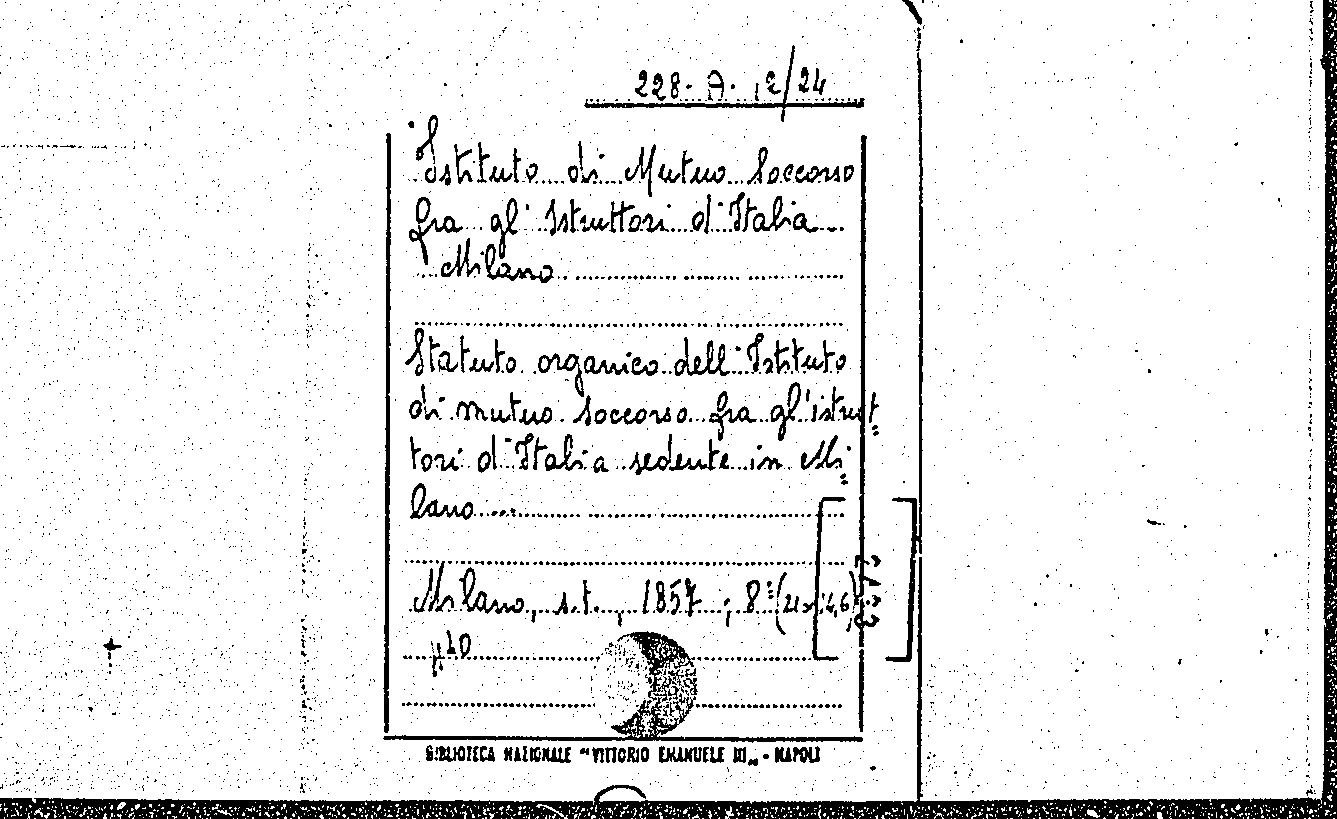 228. A. 12/24
Istituto di Mutuo Soccorso
fra gl' Istruttori d'Italia
Milano
Statuto organico dell'Istituto
di mutuo soccorso fra gl'istrut=
tori d'Italia sedente in Mi=
lano ...
Milano, s.t., 1857, 8°
p. 40
BIBLIOTECA NAZIONALE "VITTORIO EMANUELE III„ - NAPOLI